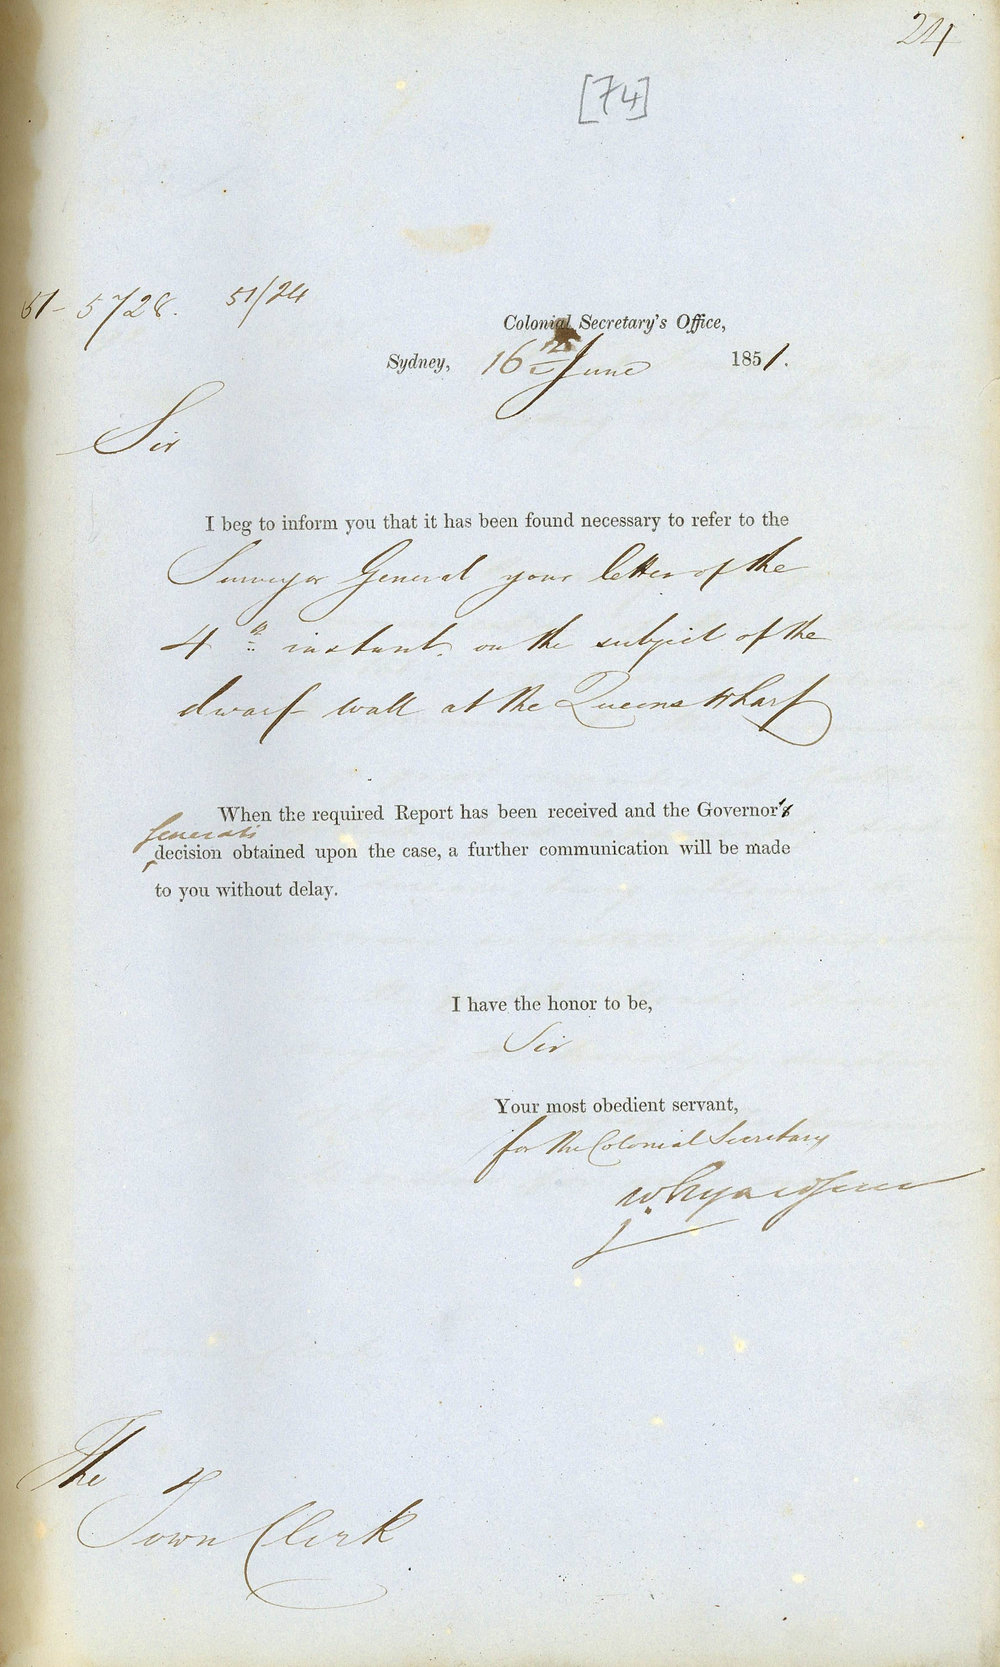 24
[74]
51-5728. 51/24
Colonial Secretary's Office,
Sydney, 16th June 1851.
Sir
I beg to inform you that it has been found necessary to refer to the
Surveyor General your letter of the
4th instant, on the subject of the
dwarf wall at the Queens Wharf
When the required Report has been received and the Governor's
Generals
decision obtained upon the case, a further communication will be made
to you without delay.
I have the honor to be,
Sir
Your most obedient servant,
for the Colonial Secretary
W.
The
Town Clerk